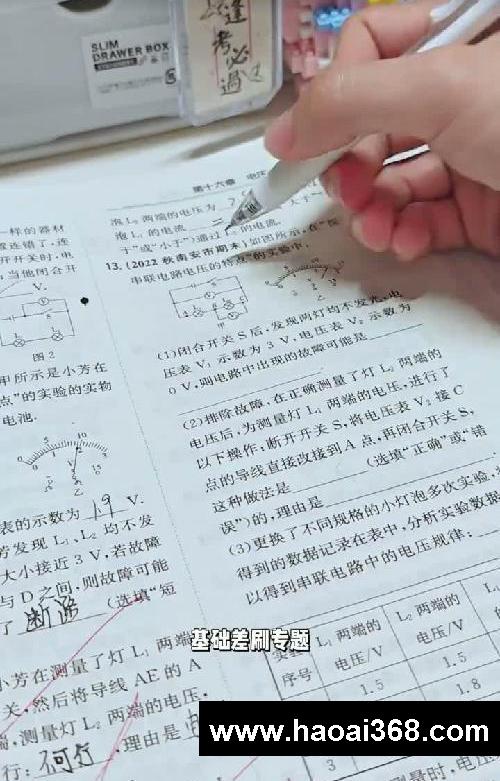 SLIM
DRAWER BOX
逢
考必
過
第十六章 电压
泡L₂两端的电压为
泡L₁的电流
于”或“小于”)通过L₂的电流.
13. (2022秋南安市期末)如图所示,在“探
串联电路电压的特点”的实验中.
(1)闭合开关S后,发现两灯均不发光,电
压表V₁示数为3V,电压表V₂示数为
0V,则电路中出现的故障可能是
(2)排除故障,在正确测量了灯L₁两端的
电压后,为测量灯L₂两端的电压,进行了
以下操作:断开开关S,将电压表V₂接C
点的导线直接改接到A点,再闭合开关S,
这种做法是 (选填“正确”或“错
误”)的,理由是
(3)更换了不同规格的小灯泡多次实验,
得到的数据记录在表中,分析实验数据
以得到串联电路中的电压规律:
实验
序号
L₁两端的
电压/V
L₂两端的
电压/V
1.5
1.5
1.8
3
一样的器材
连错了,连
开开关时,电
当他闭合开
图2
甲所示是小芳在
点”的实验的实物
电池.
表的示数为 1.9 V.
芳发现L₁、L₂均不发
大小接近3V,若故障
与D之间,则故障可能
了 断路 (选填“短
小芳在测量了灯L₁两端
关,然后将导线AE的A
端,测量灯L₂两端的电压,
行: ,理由是
基础差刷专题
www.haoai368.com